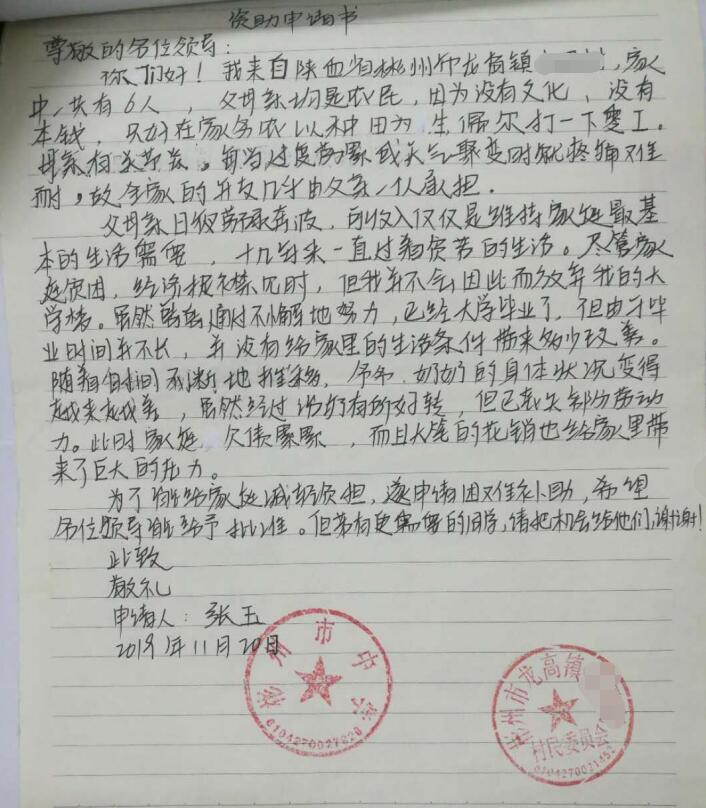 资助申请书
尊敬的各位领导：
你们好！我来自陕西省彬州市龙高镇，家
中一共有6人，父母亲均是农民，因为没有文化、没有
本钱，只好在家务农以种田为生偶尔打一下零工。
母亲有关节炎。每当过度劳累或天气骤变时就疼痛难
耐，故全家的开支几乎由父亲一人承担。
父母亲日夜劳碌奔波，的收入仅仅是维持家庭最基
本的生活需要，十几年来一直过着贫苦的生活。尽管家
庭贫困，经济报不禁见时，但我并不会因此而放弃我的大
学梦。虽然通过不懈地努力，已经大学毕业了，但由于毕
业时间并不长，并没有给家里的生活条件带来多少改善。
随着时间不断地推移，爷爷、奶奶的身体状况变得
越来越差，虽然经过治疗有所好转，但已丧失部分劳动
力。此时家庭欠债累累，而且大笔的花销也给家里带
来了巨大的压力。
为了能给家庭减轻负担，遂申请困难补助，希望
各位领导能给予批准。但若有更需要的同学，请把机会给他们，谢谢！
此致
敬礼
申请人：张五
2019年11月20日
彬州市中学
6104270027828
彬州市龙高镇
村民委员会
6104270021452